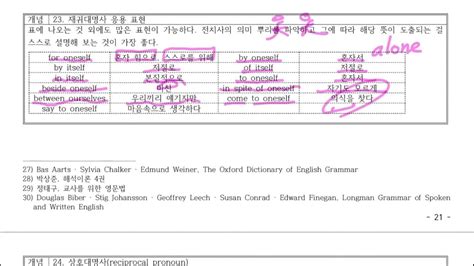 개념 | 23. 재귀대명사 응용 표현
표에 나오는 것 외에도 많은 표현이 가능하다. 전치사의 의미 뿌리를 파악하고 그에 따라 해당 뜻이 도출되는 걸
스스로 설명해 보는 것이 가장 좋다.
alone
for oneself 혼자 힘으로, 스스로를 위해 by oneself 혼자서
by itself 저절로 of itself 저절로
in itself 본질적으로 to oneself 혼자서
beside oneself in spite of oneself 자기도 모르게
between ourselves 우리끼리 얘기지만 come to oneself 의식을 찾다
say to oneself 마음속으로 생각하다
27) Bas Aarts · Sylvia Chalker · Edmund Weiner, The Oxford Dictionary of English Grammar
28) 박상준, 해석이론 4권
29) 정태구, 교사를 위한 영문법
30) Douglas Biber · Stig Johansson · Geoffrey Leech · Susan Conrad · Edward Finegan, Longman Grammar of Spoken
and Written English
- 21 -
개념 | 24. 상호대명사(reciprocal pronoun)